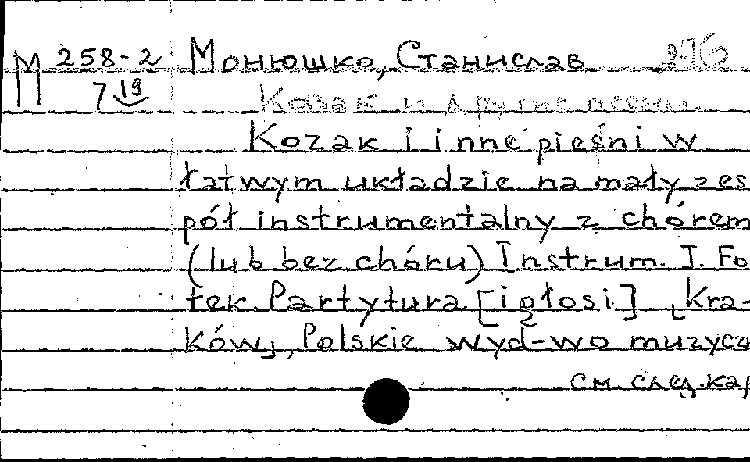 М 258-2 Монюшко, Станислав 276
7 19 Козак и другие песни.
Kozak i inne pieśni w
łatwym układzie na mały zes
pół instrumentalny z chórem
(lub bez chóru) Instrum. J. Fo
łek Partytura [i głosi] [Kra-
ków], Polskie wyd-wo muzycz
см. след. кар